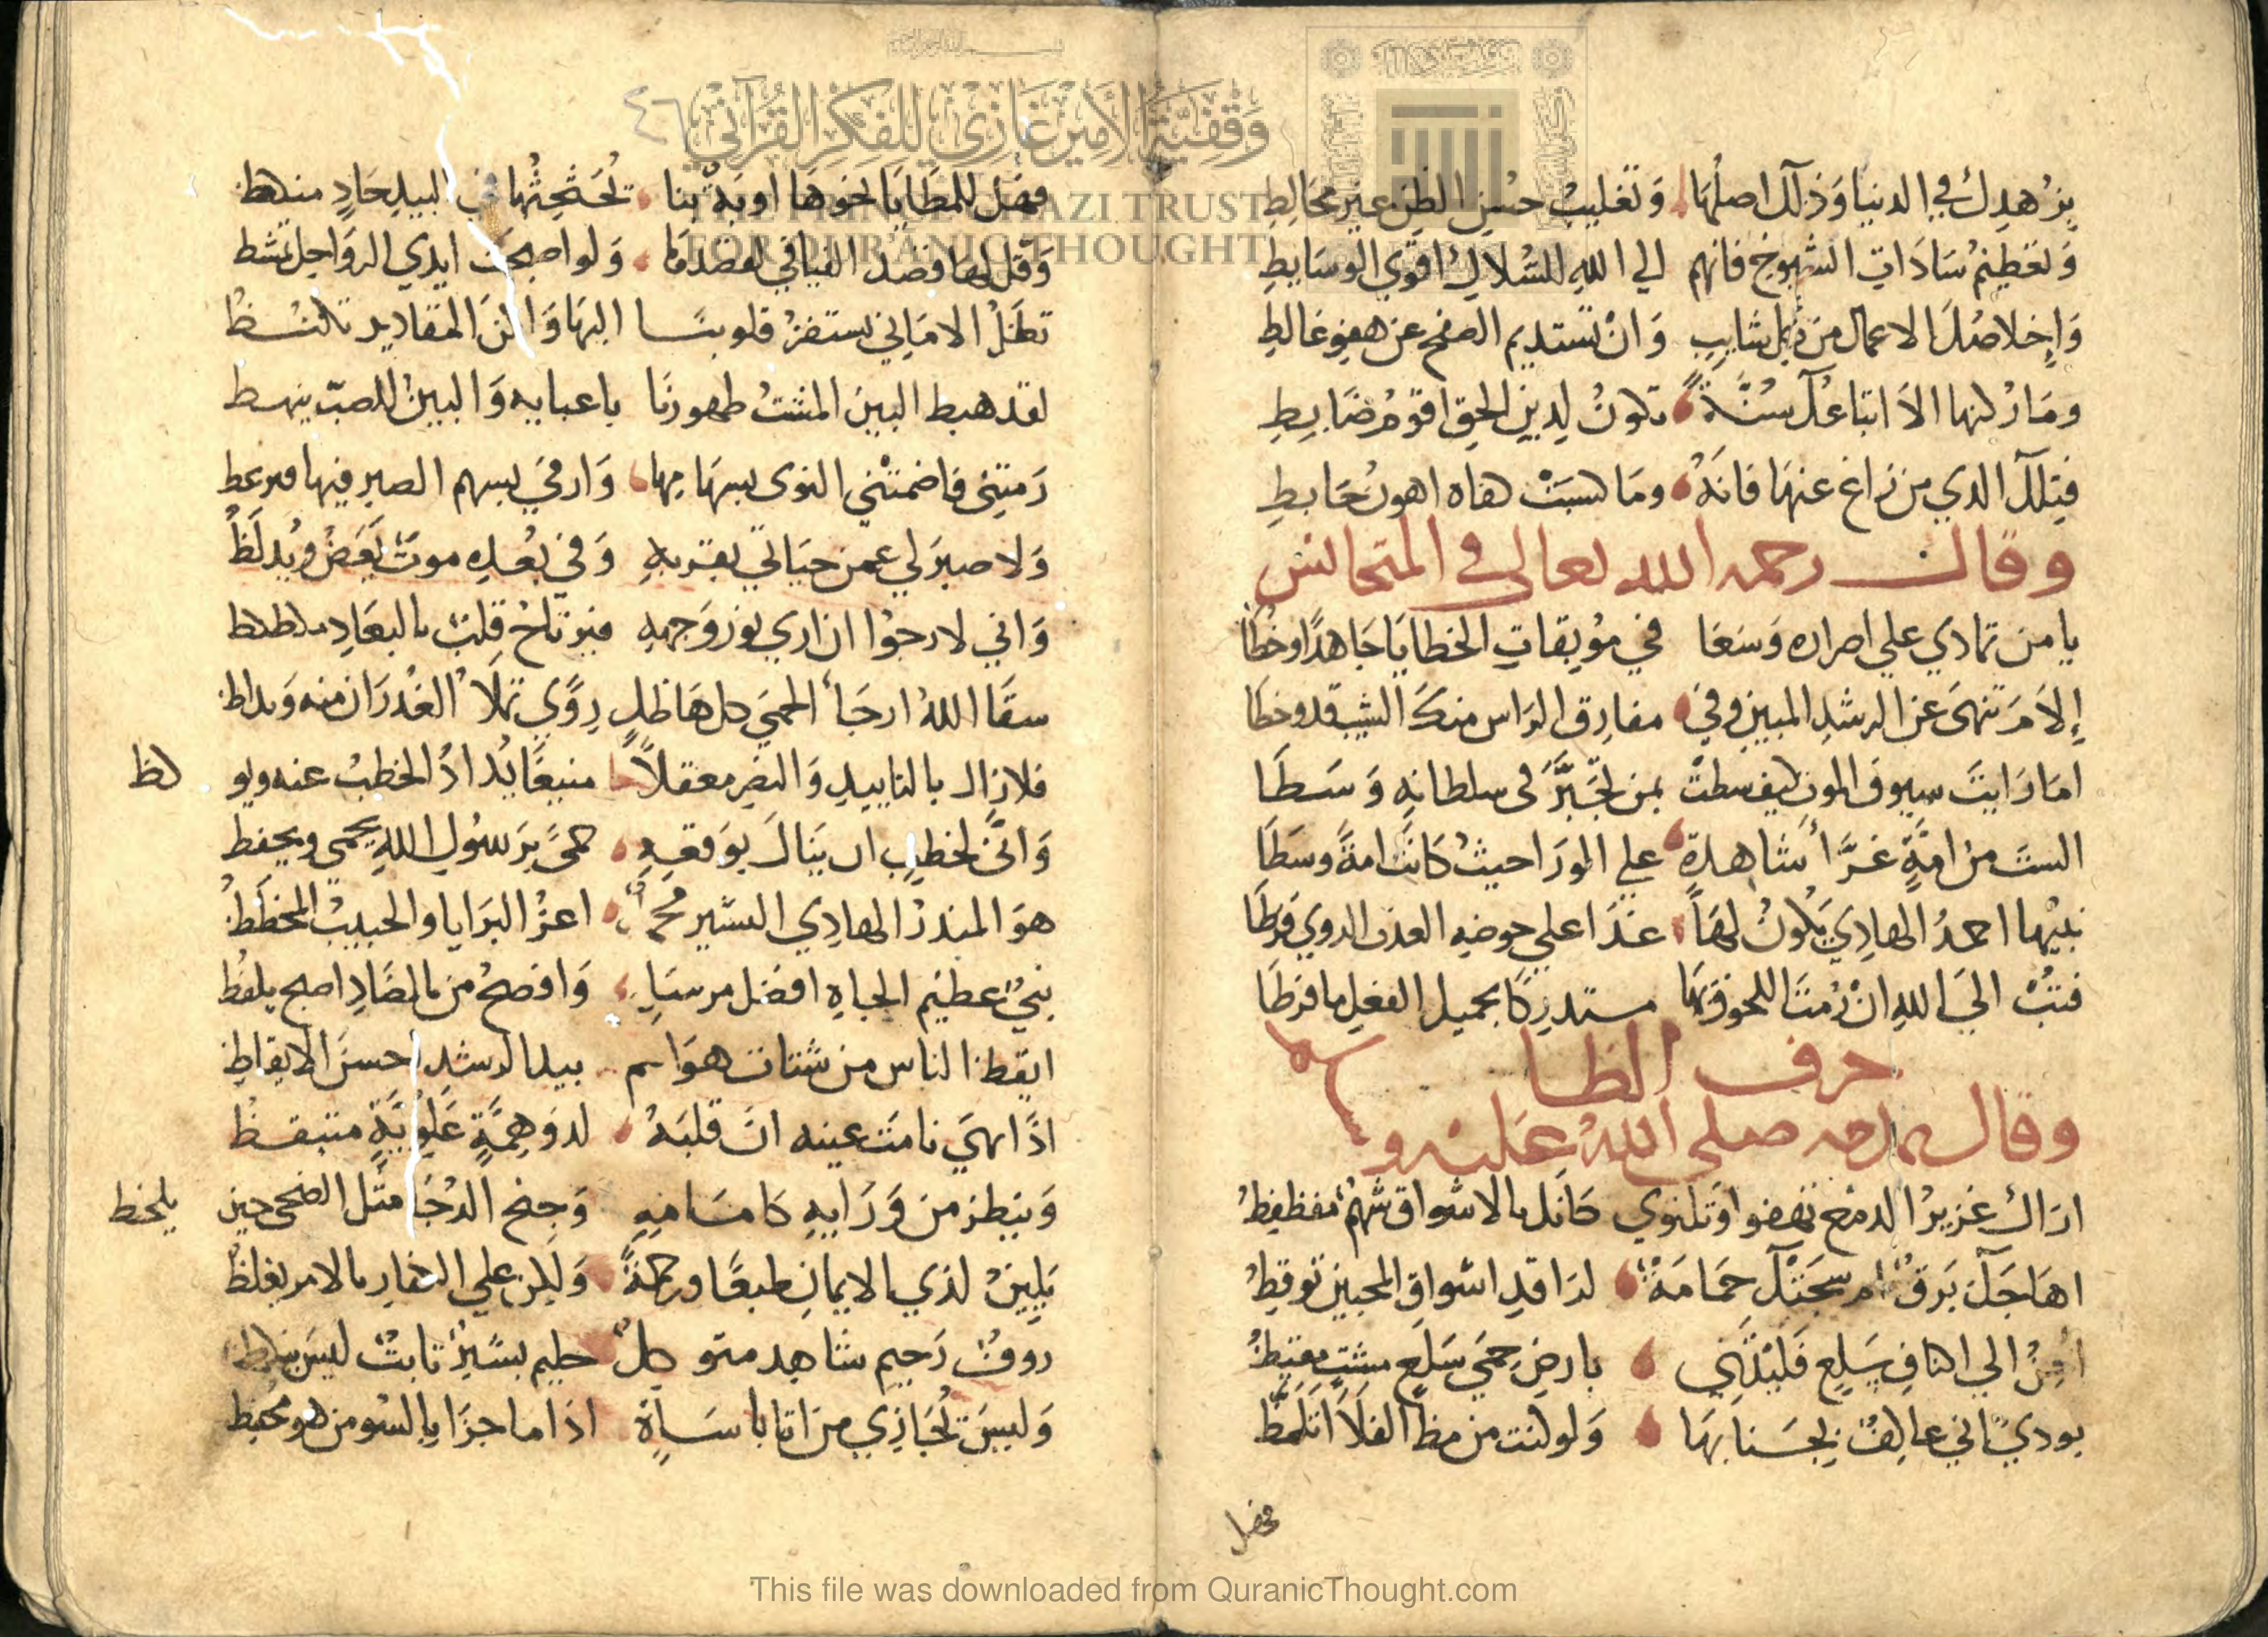 بزهدك في الدنيا وذلك اصلها وتغليب حسن الظن غير مخالط
وتعظيم سادات الشيوخ فانهم الي الله للسلاك اقوي الوسايط
واخلاصك الاعمال من كل شايب وان تستديم الصفح عن هفو غالط
وما ركنها الا اتباعك سنة تكون لدين الحق اقوم ضابط
فتلك الذي من زاغ عنها فانه وما كسبت هاه اهون حابط
وقال رحمه الله تعالى في المتجانس
يا من تمادي علي اصراره وسعا في موبقات الخطايا جاهدا وخطا
إلام تنهى عن الرشد المبين وفي مفارق الراس منك الشيب قد وخطا
اما رايت سيوف الموت كيف سطت بمن تجبر في سلطانه وسطا
الست من امة غرا شاهدة علي الورا حيث كانت امة وسطا
نبيها احمد الهادي يكون لها غدا علي حوضه العذب الروي فرطا
فتب الي الله ان رمت اللحوق بها مستدركا بجميل الفعل ما فرطا
حرف الظا
وقال يمدحه صلي الله عليه وسلم
اراك غزير الدمع تهفو وتلتوي كانك بالاشواق شهم مفظفظ
اهاجك برق ام سجتك حمامة لدا قد اشواق المحبين توقظ
احن الي اكناف سلع فليتني بارض حمي سلع مشت مقيظ
بودي اني عاكف بجنابها ولو كنت من مظ الفلا اتلمظ
فهل
٤٦
فهل للمطايا نحوها اوبة بنا تحثحثها في البيد حاد
وقل لها قصد الفيافي لقصدها ولو اصبحت ايدي الرواحل
تظل الاماني تستفز قلوبنا اليها ولكن المقادير
لقد هبط البين المشت ظهورنا باعبايه والبين للصب ينهط
رمتني فاضمتني النوى بسهامها وارمي بسهم الصبر فيها
ولا صبر لي عمن حياتي بقربه وفي بعده موت
واني لارجوا ان اري نور وجهه فيرتاح قلب بالبعاد
سقا الله ارجا الحمي كل هاطل روي تملا الغدران منه
فلا زال بالتاييد والنصر معقلا منيعا يذاد الخطب عنه ويو
كظ
واني لخطب ان ينال بوقعه حمى برسول الله يحمي ويحفظ
هو المنذر الهادي البشير محمد اعز البرايا والحبيب
نبي عظيم الجاه افضل مرسل وافصح من بالضاد اصبح يلفظ
ايقظ الناس من شتات هواهم بيد الرشد احسن الايقاظ
اذا هي نامت عينه ان قلبه لذو همة علوية متيقظ
وينظر من ورايه كامامه وجنح الدجا مثل الضحى حين
يلحظ
يلين لذي الايمان طبعا ورحمة ولكن علي الكفار بالامر يغلظ
روف رحيم شاهد متوكل حليم بشير ثابت ليس
وليس تجازي من اتا باساة اذا ما جزا بالسو من هو محفظ
وقفية الأمير غازي للفكر القرآني
THE PRINCE GHAZI TRUST
FOR QUR'ANIC THOUGHT
This file was downloaded from QuranicThought.com